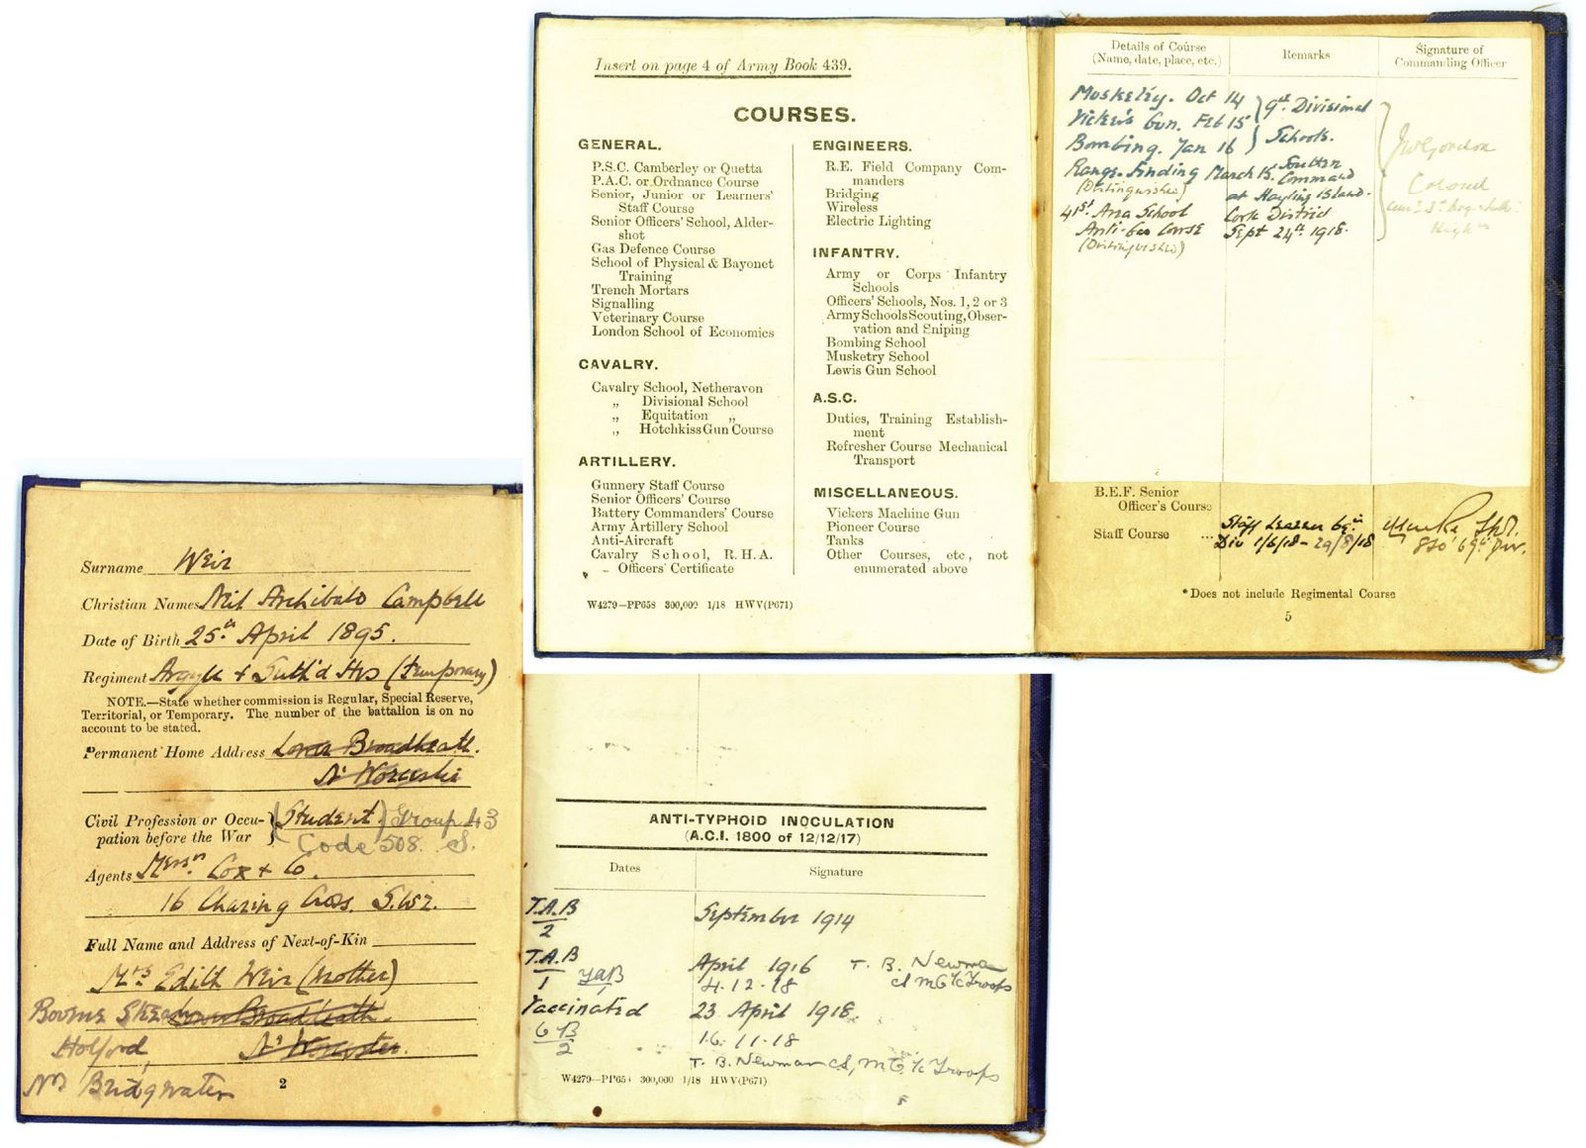 Insert on page 4 of Army Book 439.
COURSES.
GENERAL.
P.S.C. Camberley or Quetta
P.A.C. or Ordnance Course
Senior, Junior or Learners'
Staff Course
Senior Officers' School, Alder-
shot
Gas Defence Course
School of Physical & Bayonet
Training
Trench Mortars
Signalling
Veterinary Course
London School of Economics
CAVALRY.
Cavalry School, Netheravon
„ Divisional School
„ Equitation „
„ Hotchkiss Gun Course
ARTILLERY.
Gunnery Staff Course
Senior Officers' Course
Battery Commanders' Course
Army Artillery School
Anti-Aircraft
Cavalry School, R.H.A.
„ Officers' Certificate
W4279—PP658 300,000 1/18 HWV(P671)
ENGINEERS.
R.E. Field Company Com-
manders
Bridging
Wireless
Electric Lighting
INFANTRY.
Army or Corps Infantry
Schools
Officers' Schools, Nos. 1, 2 or 3
Army Schools Scouting, Obser-
vation and Sniping
Bombing School
Musketry School
Lewis Gun School
A.S.C.
Duties, Training Establish-
ment
Refresher Course Mechanical
Transport
MISCELLANEOUS.
Vickers Machine Gun
Pioneer Course
Tanks
Other Courses, etc, not
enumerated above
Details of Course
(Name, date, place, etc.)
Remarks
Signature of
Commanding Officer
Musketry. Oct 14
Vickers Gun. Feb 15
Bombing. Jan 16
9th Divisional
Schools.
Range-Finding March 15. Southern
(Distinguished) Command
at Hayling Island.
41st Area School Cork District
Anti-Gas Course Sept 24th 1918.
(Distinguished)
Gordon
Colonel
B.E.F. Senior
Officer's Course
Staff Course ... Staff Learner 69th
Div 1/6/18 – 29/8/18
GSO 69th Div.
*Does not include Regimental Course
5
Surname Weir
Christian Names Neil Archibald Campbell
Date of Birth 25th April 1895.
Regiment Argyll & Suth'd Hrs (temporary)
NOTE.—State whether commission is Regular, Special Reserve,
Territorial, or Temporary. The number of the battalion is on no
account to be stated.
Permanent Home Address Lower Broadheath.
Nr Worcester
Civil Profession or Occu-
pation before the War
(Student) Group 43
Code 508. S.
Agents Messrs Cox & Co.
16 Charing Cross. S.W2.
Full Name and Address of Next-of-Kin
Mrs Edith Weir (Mother)
Bowms Stream Lower Broadheath.
Holford, Nr Worcester.
Nr Bridgwater
2
ANTI-TYPHOID INOCULATION
(A.C.I. 1800 of 12/12/17)
Dates
Signature
T.A.B
2
September 1914
T.A.B
1
April 1916
TAB
1
4.12.18
T. B. Newman
Vaccinated 23 April 1918.
2
16.11.18
T. B. Newman
W4279—PP658 300,000 1/18 HWV(P671)